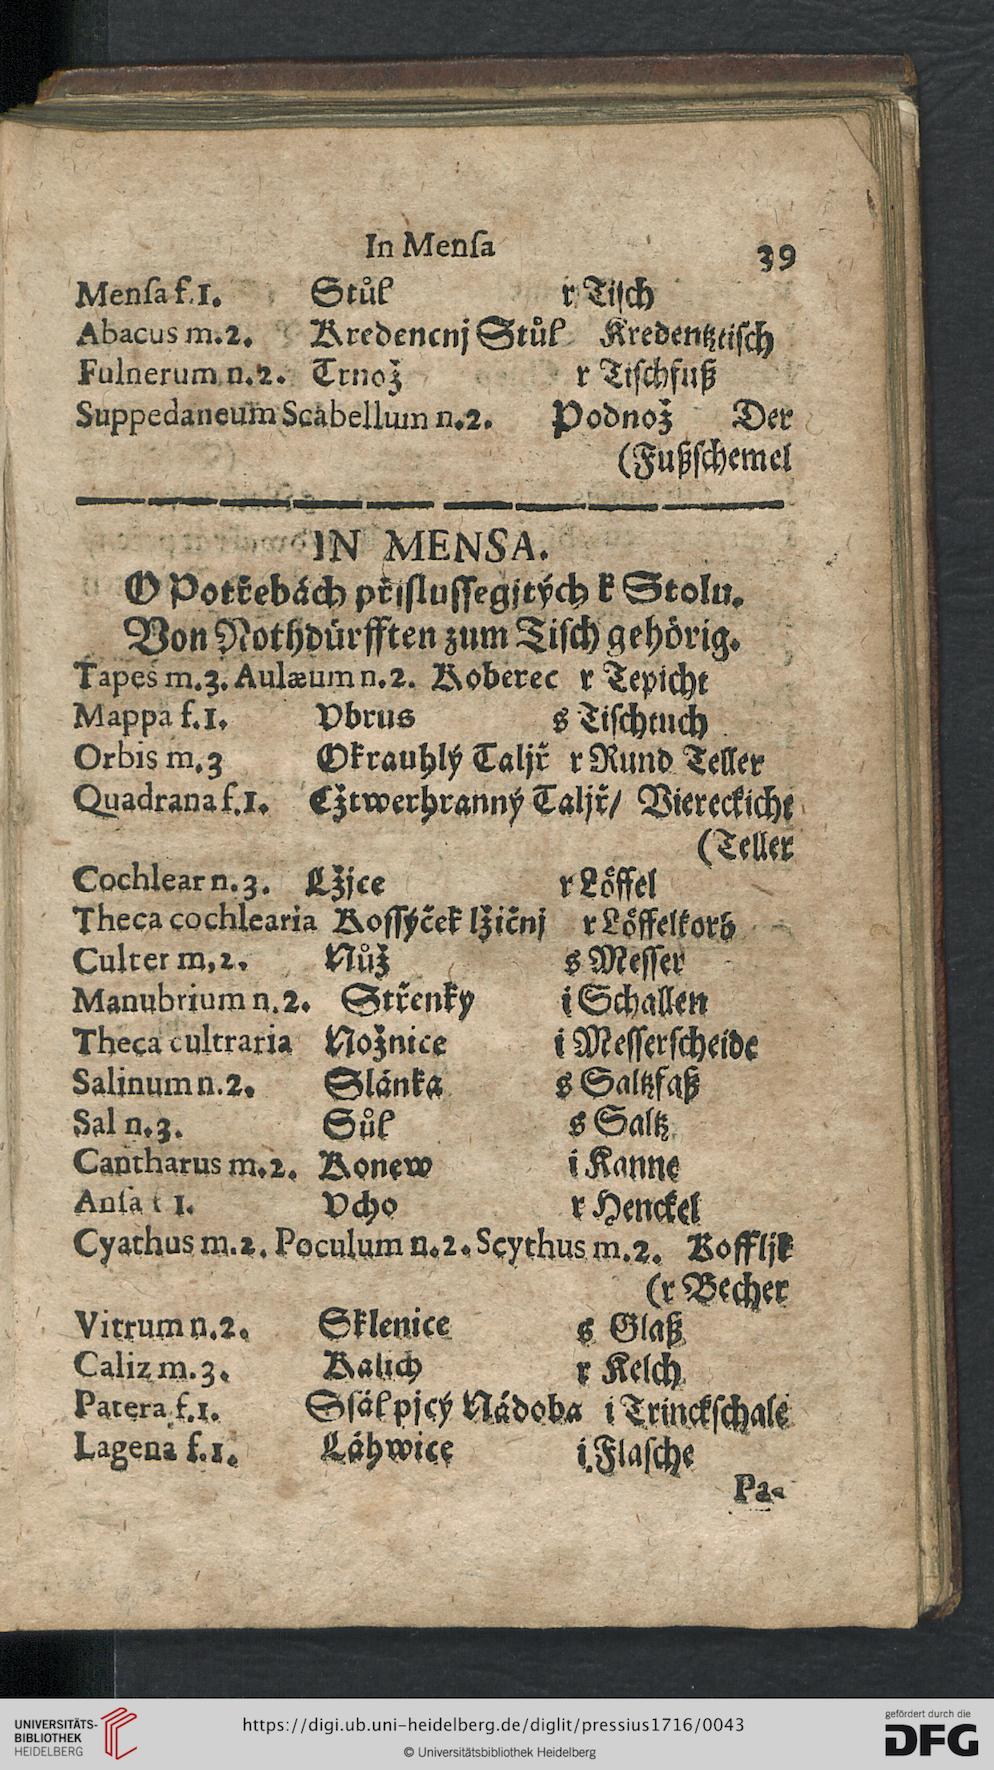 In Menſa 39
Menſa f.1. Stůl r Tiſch
Abacus m.2. Kredencnj Stůl Kredentztiſch
Fulnerum n.2. Trnož r Tiſchfuß
Suppedaneum Scabellum n.2. Podnož Der
(Fußſchemel
IN MENSA.
O Potřebách přiſluſſegjtých k Stolu.
Von Nothdürfften zum Tiſch gehörig.
Tapes m.3. Aulæum n.2. Koberec r Tepicht
Mappa f.1. Vbrus s Tiſchtuch
Orbis m.3 Okrauhlý Taljř r Rund Teller
Quadrana f.1. Cžtwerhranný Taljř/ Viereckicht
(Teller
Cochlear n.3. Lžjce r Löffel
Theca cochlearia Koſſýček lžičnj r Löffelkorb
Culter m,2. Nůž s Meſſer
Manubrium n.2. Střenky i Schallen
Theca cultraria Nožnice i Meſſerſcheide
Salinum n.2. Slánka s Saltzfaß
Sal n.3. Sůl s Saltz
Cantharus m.2. Konew i Kanne
Anſa f 1. Vcho r Henckel
Cyathus m.2. Poculum n.2. Scythus m.2. Koffljk
(r Becher
Vitrum n.2. Sklenice s Glaß
Caliz m.3. Kalich r Kelch
Patera f.1. Sſálpjcý Nádoba i Trinckſchale
Lagena f.1. Láhwice i Flaſche
Pa-
UNIVERSITÄTS-
BIBLIOTHEK
HEIDELBERG
https://digi.ub.uni-heidelberg.de/diglit/pressius1716/0043
© Universitätsbibliothek Heidelberg
gefördert durch die
DFG